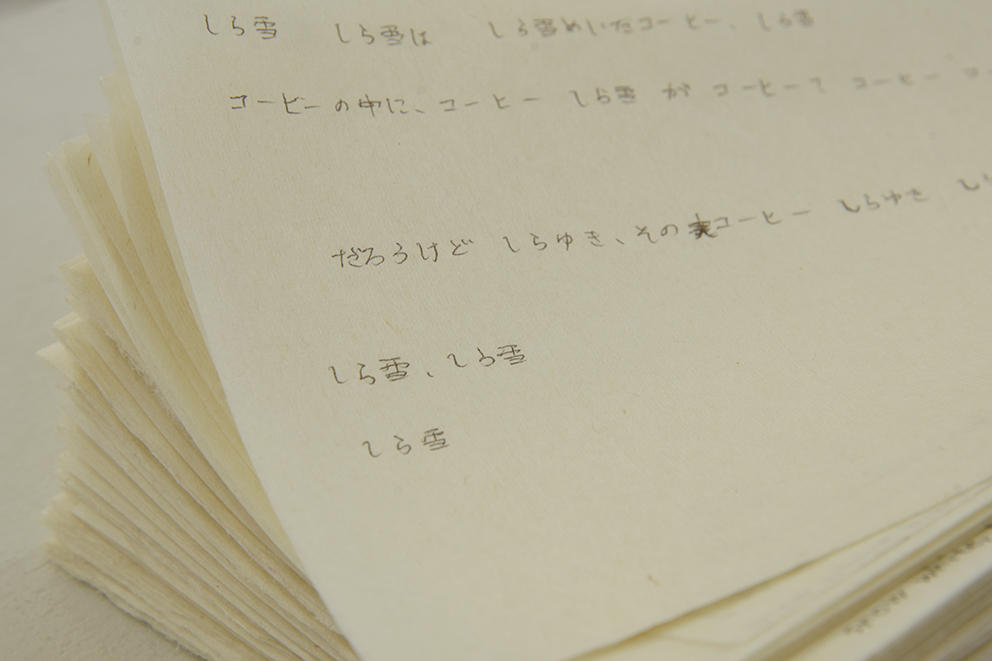 しら雪 しら雪は しら雪めいたコーヒー、しら雪
コーヒーの中に、コーヒー しら雪 が コーヒーて コーヒー
だろうけど しらゆき、その実コーヒー しらゆき し
しら雪、しら雪
しら雪